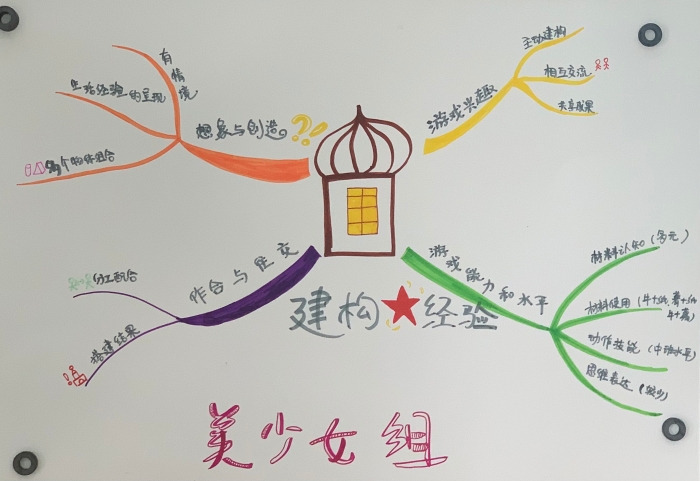 有情境
生活经验的呈现
多个物体组合
想象与创造
??
游戏兴趣
主动建构
相互交流
共享成果
作合与社交
分工配合
搭建结果
建构 经验
游戏能力和水平
材料认知(多元)
材料使用
动作技能(中班水平)
思维表达(较少)
美少女组